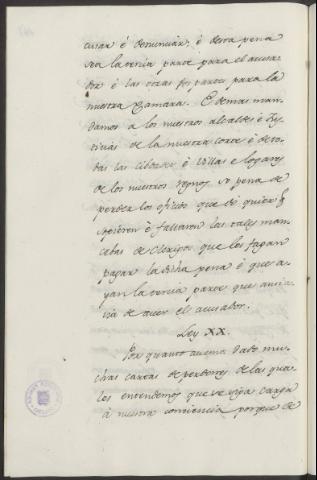 cusar é denunciar, é desta pena
sea la tercia parte para el acusa-
dor é las otras dos partes para la
nuestra Camara. E demas man-
damos a los nuestros alcaldes é Jus-
ticias de la nuestra corte é de to-
das las cibdades é villas é logares
de los nuestros reynos so pena de
perder los oficios que do quier q.
sopieren é fallaren las tales man-
cebas de clerigos que les fagan
pagar la dicha pena é que a-
yan la tercia parte que avria
de aver el acusador.
Ley XX.
Por quanto avemos dado mu-
chas cartas de perdones de las qua-
les entendemos que se siga carga
á nuestra conciencia porque de